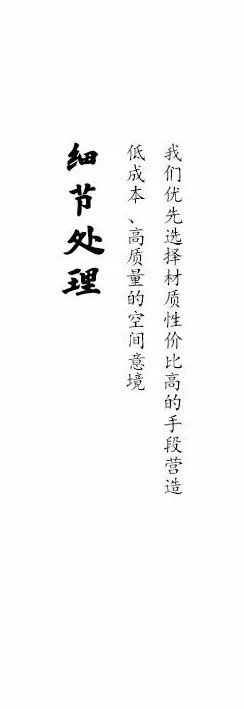 我们优先选择材质性价比高的手段营造
低成本、高质量的空间意境
细节处理